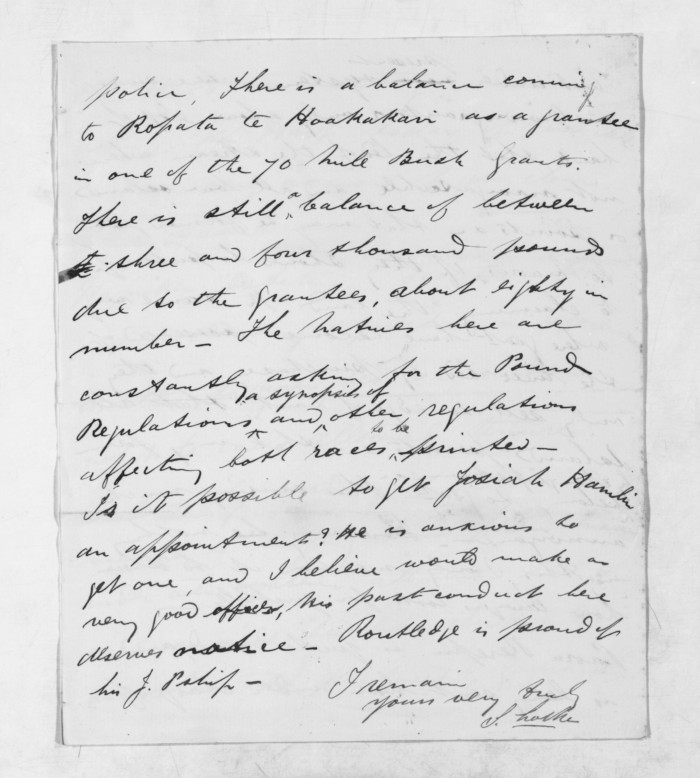 police, There is a balance coming
to Ropata te Hoakakari as a grantee
in one of the 70 Mile Bush Grants.
There is still a balance of between
three and four thousand pounds
due to the grantees, about eighty in
number – The Natives here are
constantly asking for the Pound
Regulations and a synopsis of other regulations
affecting both races to be printed –
Is it possible to get Josiah Hamlin
an appointment? He is anxious to
get one, and I believe would make a
very good officer, his past conduct here
deserves notice – Routledge is proud of
his J. Pship –
I remain
yours very truly
S. Locke